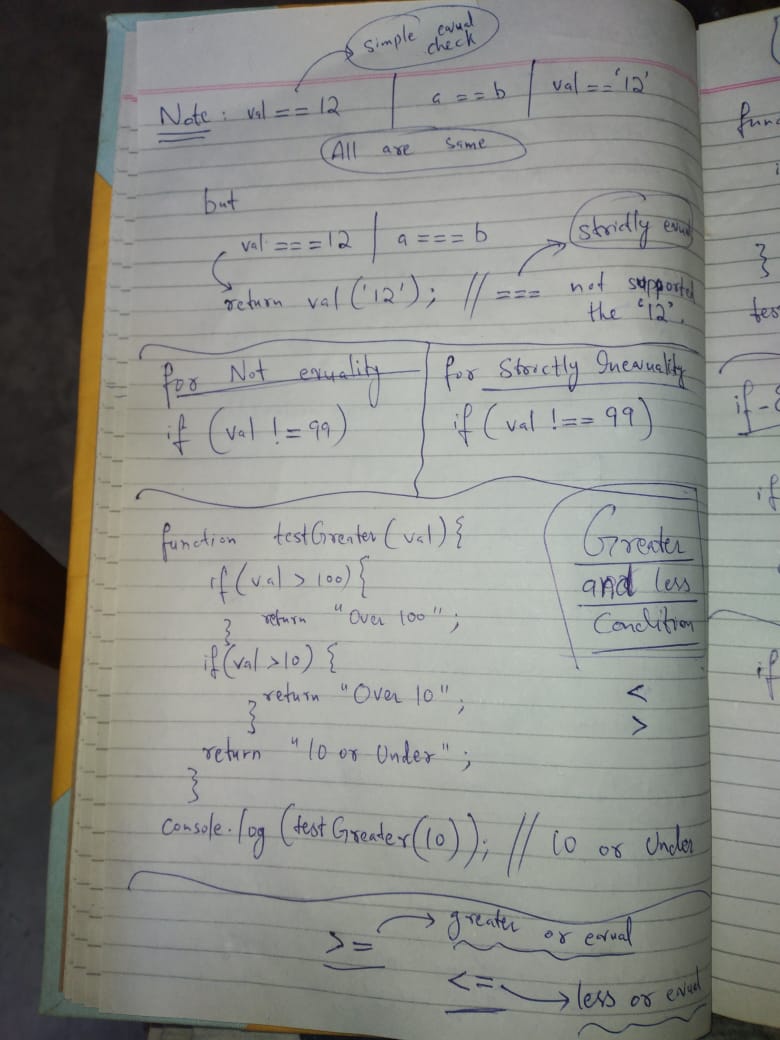 simple equal
check
Note: val == 12 | a == b | val == '12'
All are same
but
val === 12 | a === b
strictly equal
return val('12'); // === not supported
the "12".
for Not equality
if (val != 99)
for Strictly Inequality
if (val !== 99)
function testGreater(val){
if(val > 100){
return "Over 100";
}
if(val >10) {
return "Over 10";
}
return "10 or Under";
}
console.log(testGreater(10)); // 10 or Under
Greater
and less
Condition
<
>
>= → greater or equal
<= → less or equal
func
}
tes
if
if